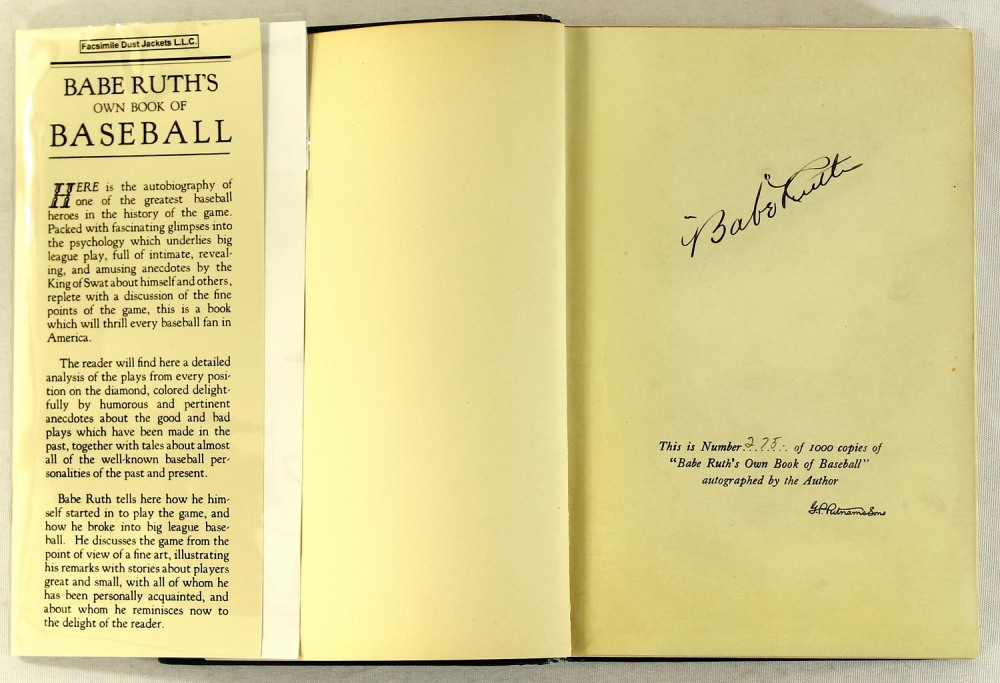 Facsimile Dust Jackets L.L.C.
BABE RUTH'S
OWN BOOK OF
BASEBALL
HERE is the autobiography of
one of the greatest baseball
heroes in the history of the game.
Packed with fascinating glimpses into
the psychology which underlies big
league play, full of intimate, reveal-
ing, and amusing anecdotes by the
King of Swat about himself and others,
replete with a discussion of the fine
points of the game, this is a book
which will thrill every baseball fan in
America.
The reader will find here a detailed
analysis of the plays from every posi-
tion on the diamond, colored delight-
fully by humorous and pertinent
anecdotes about the good and bad
plays which have been made in the
past, together with tales about almost
all of the well-known baseball per-
sonalities of the past and present.
Babe Ruth tells here how he him-
self started in to play the game, and
how he broke into big league base-
ball. He discusses the game from the
point of view of a fine art, illustrating
his remarks with stories about players
great and small, with all of whom he
has been personally acquainted, and
about whom he reminisces now to
the delight of the reader.
"Babe" Ruth
This is Number 275 of 1000 copies of
"Babe Ruth's Own Book of Baseball"
autographed by the Author
G.P. Putnam's Sons